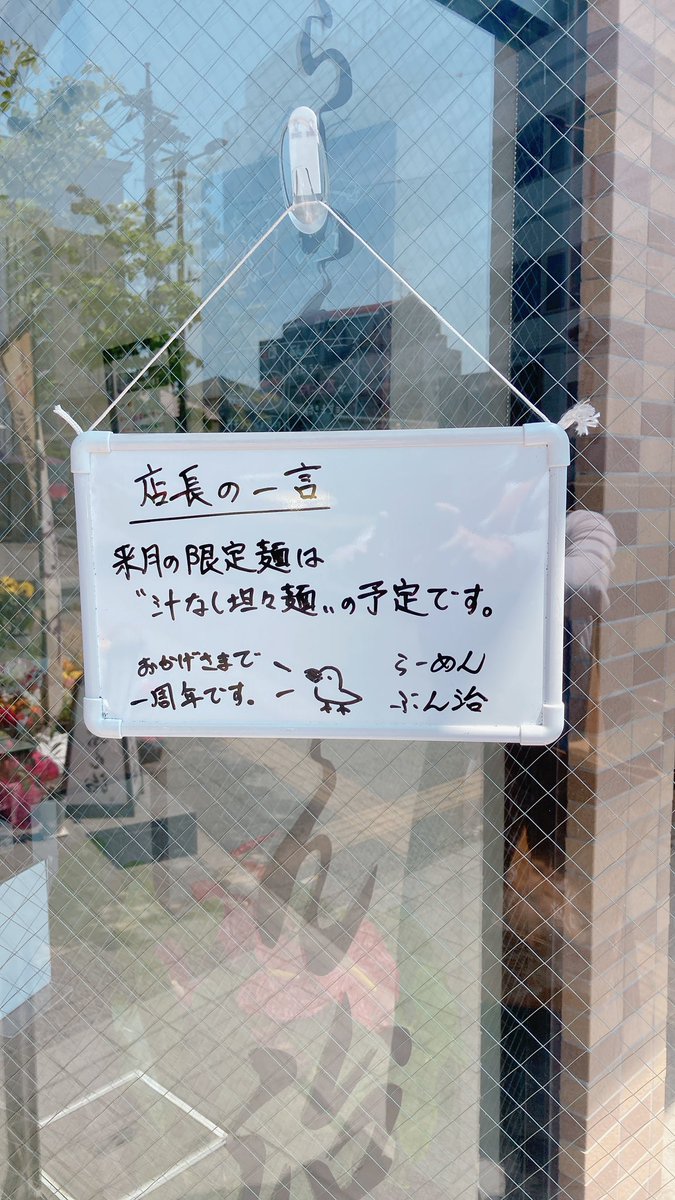 店長の一言
来月の限定麺は
〝汁なし坦々麺〟の予定です。
おかげさまで
一周年です。
らーめん
ぶん治